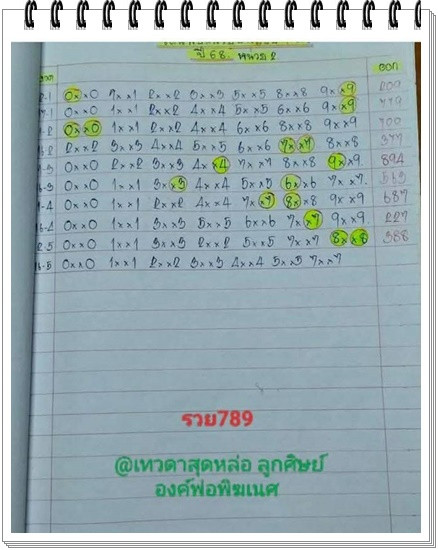 ปี 68. หมวด 2
งวด ออก
2-1 0××0 1××1 2××2 3××3 5××5 8××8 9××9 209
17-1 0××0 1××1 2××2 4××4 5××5 6××6 9××9 779
1-2 0××0 1××1 2××2 4××4 6××6 8××8 9××9 700
16-2 2××2 3××3 4××4 5××5 6××6 7××7 8××8 377
0××0 2××2 3××3 4××4 7××7 8××8 9××9 894
16-3 0××0 1××1 3××3 4××4 5××5 6××6 7××7. 563
1-4 0××0 1××1 2××2 4××4 7××7 8××8 9××9 687
16-4 0××0 1××1 3××3 5××5 6××6 7××7 9××9 227
2-5 0××0 1××1 3××3 2××2 5××5 7××7 8××8 388
16-5 0××0 1××1 2××2 3××3 4××4 5××5 7××7
รวย789
@เทวดาสุดหล่อ ลูกศิษย์
องค์พ่อพิฆเนศ